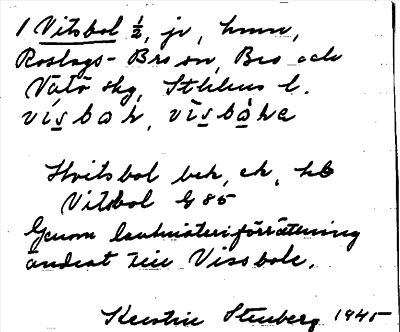 1 Vitsbol ½, jr, hmn,
Roslags-Bro sn, Bro och
Vätö skg, Sthlms l.
visbòk, visbòka
Hvitsbol bek, ek, hb
Vitsbol G 85
Genom lantmäteriförrättning
ändrat till Vissbole.
Kerstin Stenberg 1945